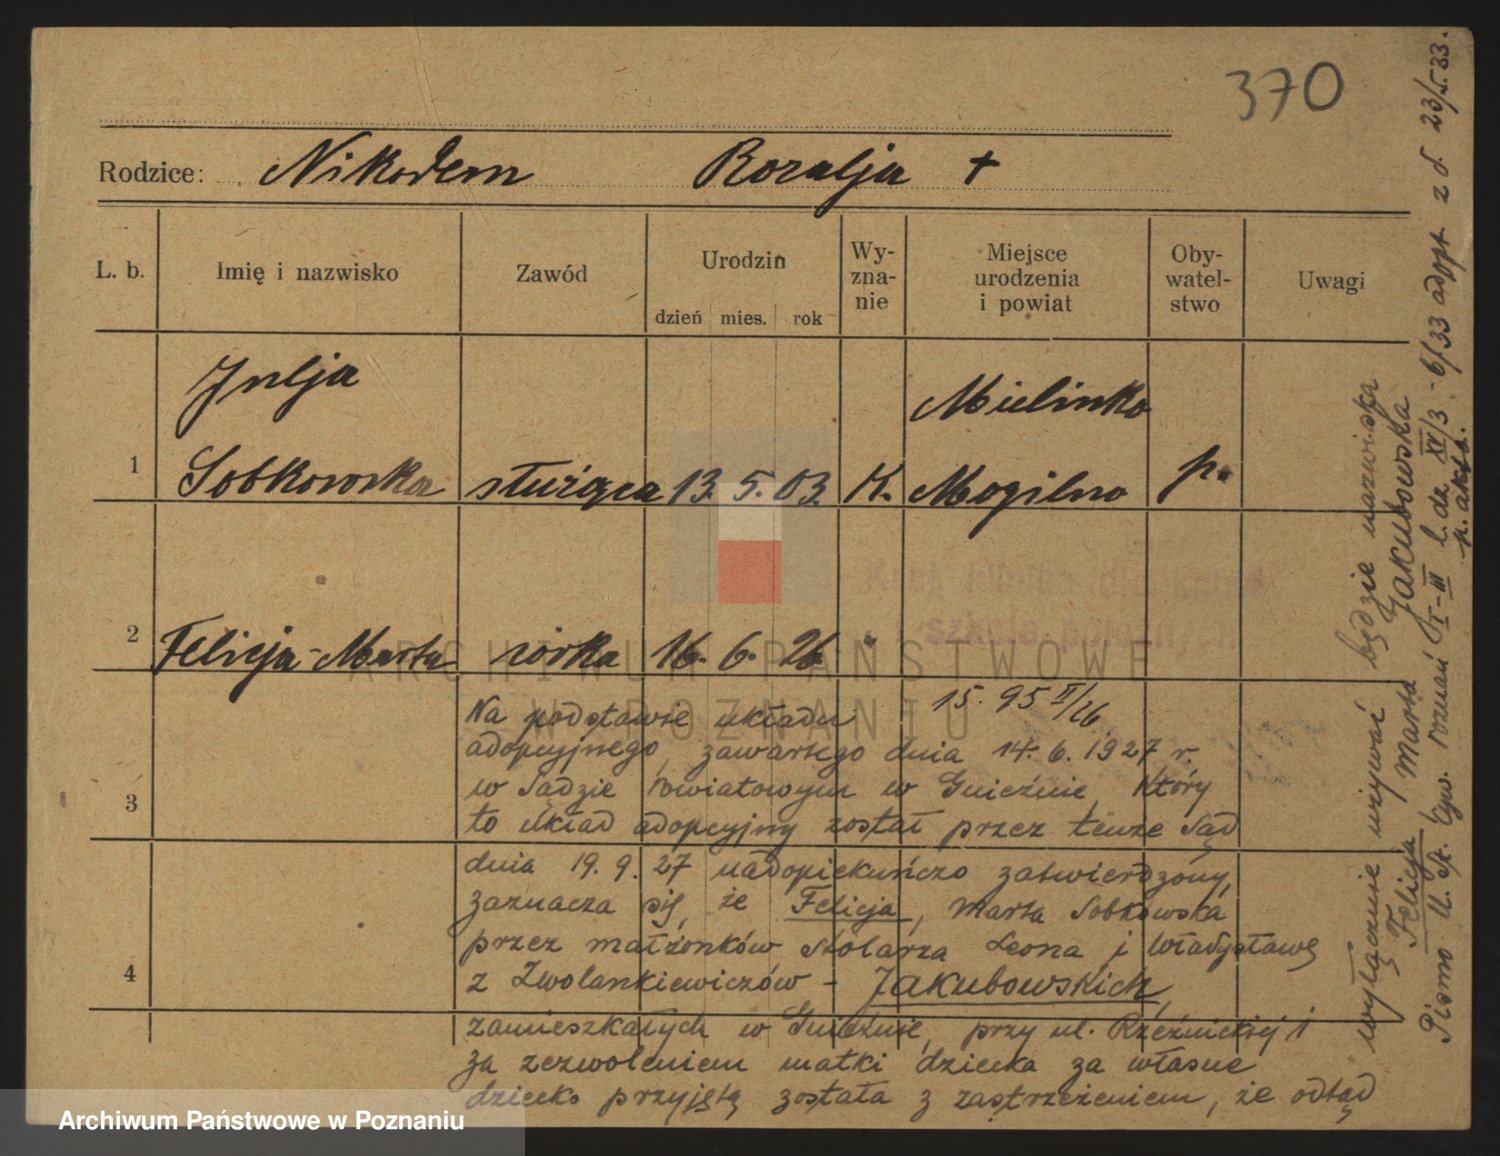 370
Rodzice: Nikodem Rozalja +
L. b. Imię i nazwisko Zawód Urodzin dzień mies. rok Wy-zna-nie Miejsce urodzenia i powiat Oby-watel-stwo Uwagi
Julja Mielinko
1 Sobkowska służąca 13. 5. 03. K. Mogilno p.
2 Felicja-Marta córka 16. 6. 26 "
15. 95 II/26
Na podstawie układu
adopcyjnego, zawartego dnia 14. 6. 1927 r.
3 w Sądzie Powiatowym w Gnieźnie, który
to układ adopcyjny został przez tenże Sąd
dnia 19. 9. 27 nadopiekuńczo zatwierdzony,
zaznacza się, że Felicja, Marta Sobkowska
przez małżonków stolarza Leona i Władysławę
4 z Zwolankiewiczów - Jakubowskich,
zamieszkałych w Gnieźnie, przy ul. Rzeźnickiej i
za zezwoleniem matki dziecka za własne
dziecko przyjętą została z zastrzeżeniem, że odtąd
wyłącznie używać będzie nazwiska
Felicja Marta Jakubowska
Pismo U. St. Cyw. Poznań I-III l. dz. XV/3 - 6/33 adopt z d. 23/5.33.
p. akta.
Kraj. klinika dla kobiet
i szkoła położnych
ARCHIWUM PAŃSTWOWE
W POZNANIU
Archiwum Państwowe w Poznaniu